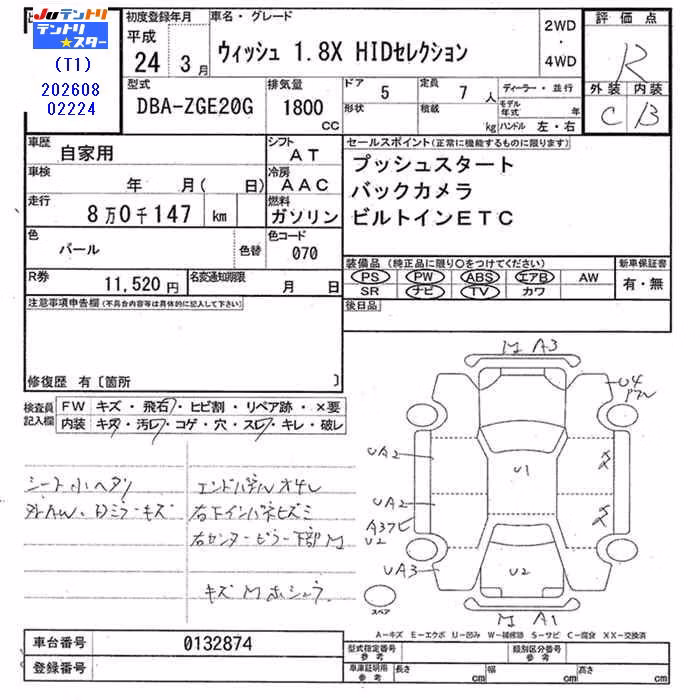 JUテントリ
テントリ★スター
(T1)
202608
02224
初度登録年月
平成
24 3月
車名・グレード
ウィッシュ 1.8X HIDセレクション
2WD
・
4WD
評価点
R
外装 内装
C B
型式
DBA-ZGE20G
排気量
1800
CC
ドア 5
形状
定員 7人
積載 kg
ディーラー・並行
モデル年式 年
ハンドル 左・右
車歴 自家用
シフト AT
車検 年 月( 日)
冷房 AAC
走行 8万0千147 km
燃料 ガソリン
色 パール 色替
色コード 070
R券 11,520円
名変通知期限 月 日
セールスポイント(正常に機能するものに限ります)
プッシュスタート
バックカメラ
ビルトインETC
装備品(純正品に限り〇をつけてください)
PS PW ABS エアB AW
SR ナビ TV カワ
新車保証書
有・無
後日品
注意事項申告欄(不具合内容等は具体的に記入して下さい)
修復歴 有〔箇所 〕
検査員記入欄
FW キズ・飛石・ヒビ割・リペア跡・×要
内装 キズ・汚レ・コゲ・穴・スレ・キレ・破レ
シート小ヘタリ
外AW、Dミラーキズ
エンドパネルオサレ
右下インパネヒズミ
右センターピラー下部M
キズMホシュウ
M A3
U4
UA2
U1
UA2
A37ビ
U2
UA3
U2
M A1
スペア
A-キズ E-エクボ U-凹み W-補修跡 S-サビ C-腐食 XX-交換済
車台番号 0132874
登録番号
型式指定番号 参考
類別区分番号 参考
車庫証明用 参考 長さ cm 幅 cm 高さ cm